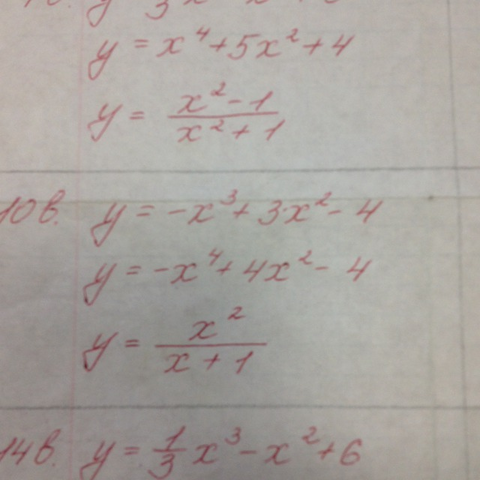 y = x⁴+5x²+4
y = (x²-1)/(x²+1)
10в. y = -x³+3x²-4
y = -x⁴+4x²-4
y = x²/(x+1)
14в. y = 1/3 x³-x²+6